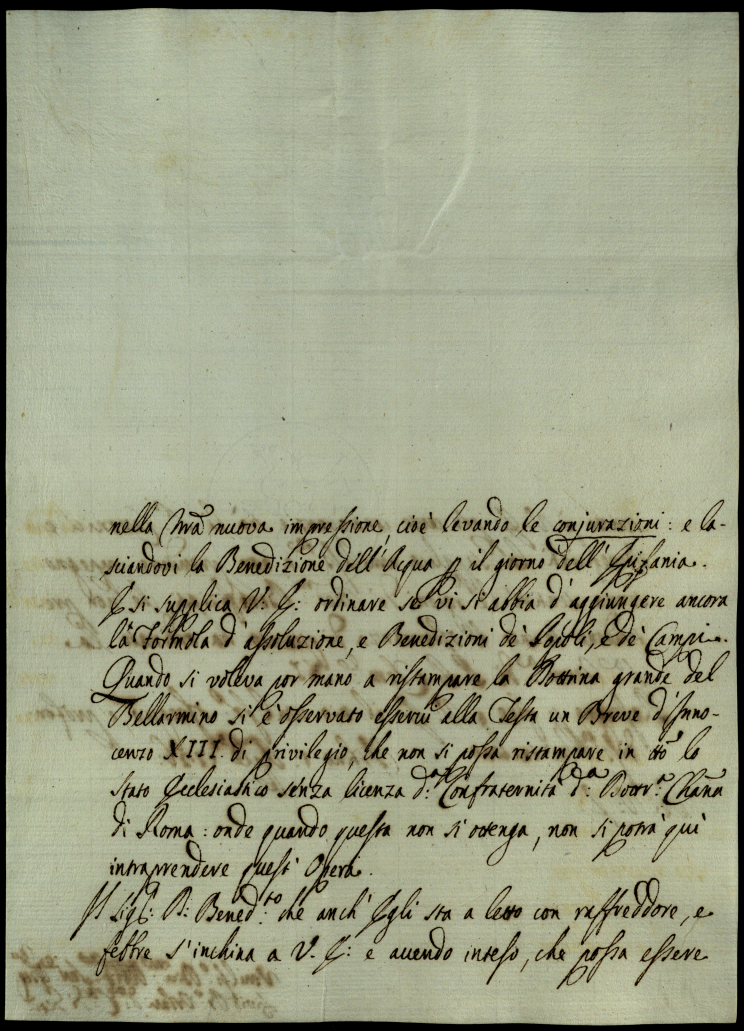 nella nrã nuova impressione, cioè levando le conjurazioni: e la-
sciandovi la Benedizione dell'Acqua p il giorno dell'Epifania.
E si supplica V: E: ordinare se vi si abbia d'aggiungere ancora
la Formola d'assoluzione, e Benedizioni de' Sepolcri, e de' Campi.
Quando si voleva por mano a ristampare la Dottrina grande del
Bellarmino si è osservato esservi alla Testa un Breve d'Inno-
cenzo XIII. di privilegio, che non si possa ristampare in tto lo
Stato Ecclesiastico senza licenza d:ª Confraternità d:ª Dottr:ª Chãna
di Roma: onde quando questa non si ottenga, non si potrà quì
intraprendere quest'Opera.
Il Sig:r D: Bened:to che anch'Egli sta a letto con raffreddore, e
febbre s'inchina a V. E: e avendo inteso, che possa essere